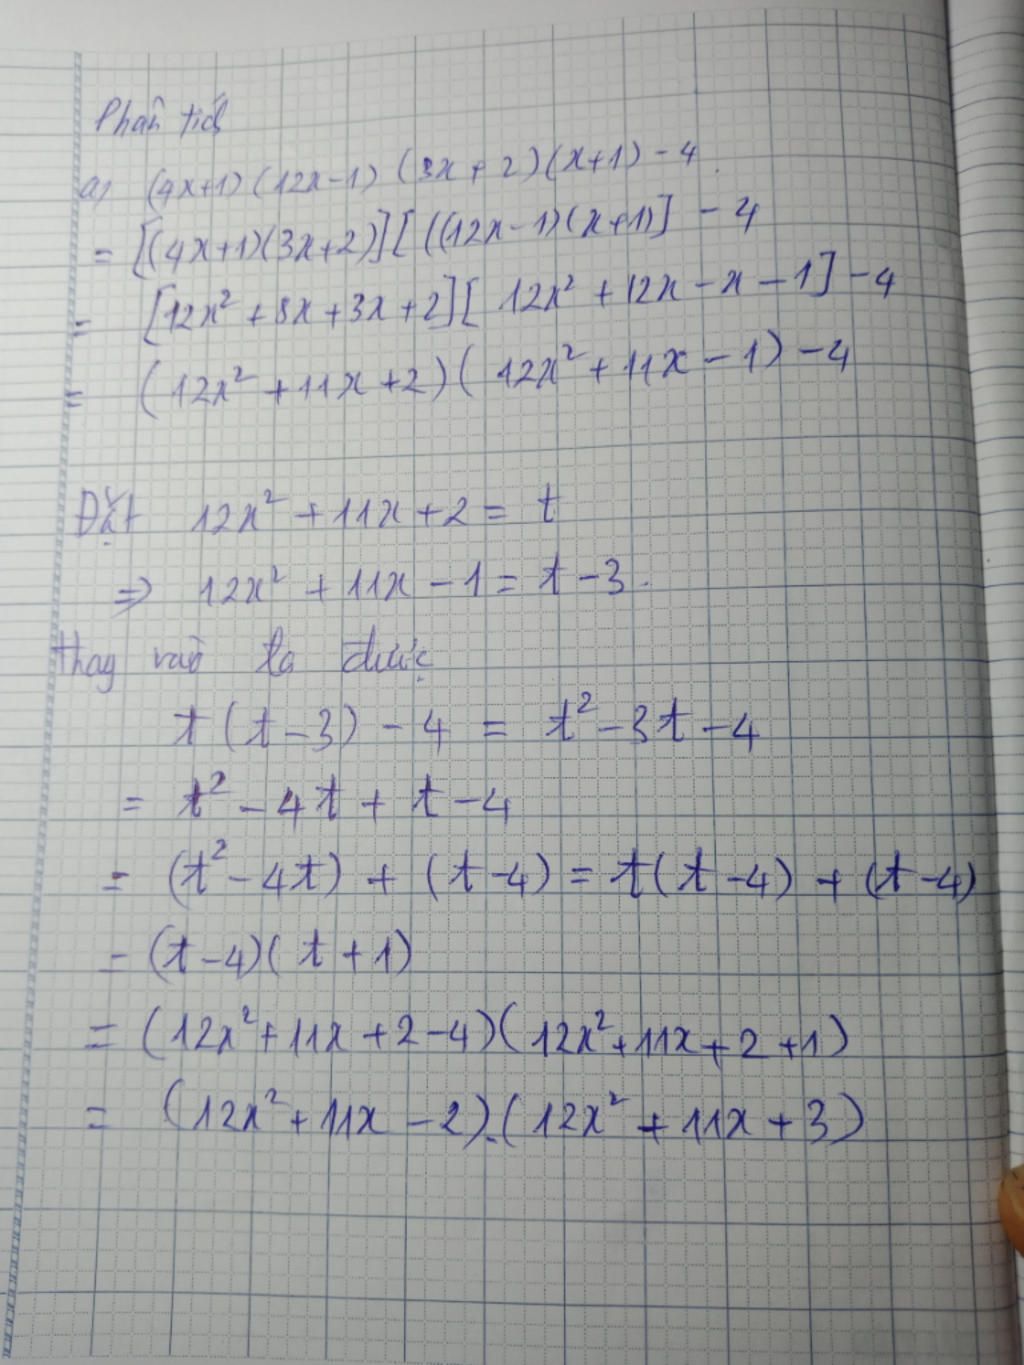 Phân tích
a) (4x+1)(12x-1)(3x+2)(x+1)-4.
= [(4x+1)(3x+2)][((12x-1)(x+1)]-4
= [12x²+8x+3x+2][12x²+12x-x-1]-4
= (12x²+11x+2)(12x²+11x-1)-4
Đặt 12x²+11x+2 = t
⇒ 12x²+11x-1 = t-3.
thay vào ta được
t(t-3)-4 = t²-3t-4
= t²-4t+t-4
= (t²-4t)+(t-4) = t(t-4)+(t-4)
= (t-4)(t+1)
= (12x²+11x+2-4)(12x²+11x+2+1)
= (12x²+11x-2).(12x²+11x+3)